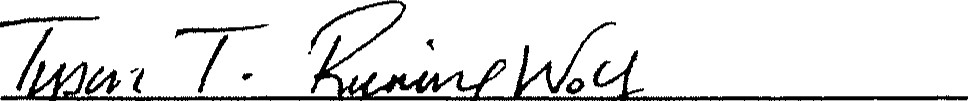 Tyson T. Running Wolf